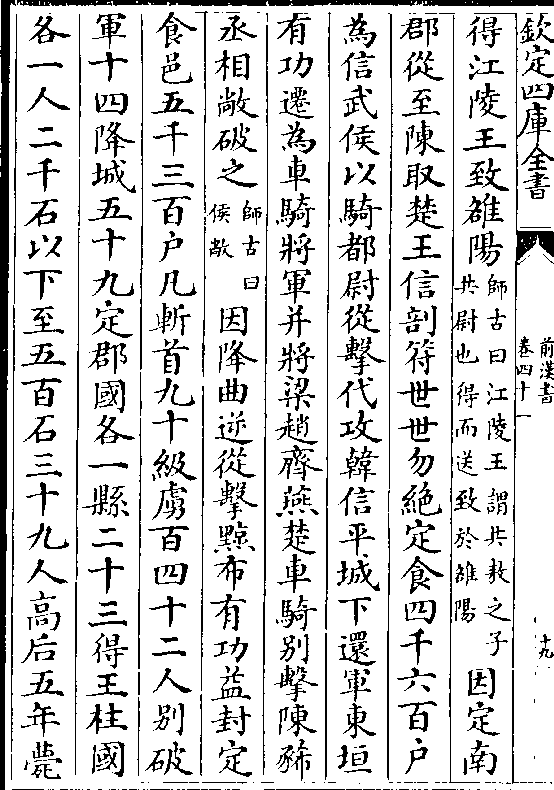 欽定四庫全書
前漢書
卷四十一
十九
得江陵王致雒陽師古曰江陵王謂共敖之子
共尉也得而送致於雒陽因定南
郡從至陳取楚王信剖符世世勿絶定食四千六百户
為信武侯以騎都尉從擊代攻韓信平城下還軍東垣
有功遷為車騎將軍并將梁趙齊燕楚車騎别擊陳豨
丞相敞破之師古曰
侯敞因降曲逆從擊黥布有功益封定
食邑五千三百户凡斬首九十級虜百四十二人别破
軍十四降城五十九定郡國各一縣二十三得王柱國
各一人二千石以下至五百石三十九人高后五年薨